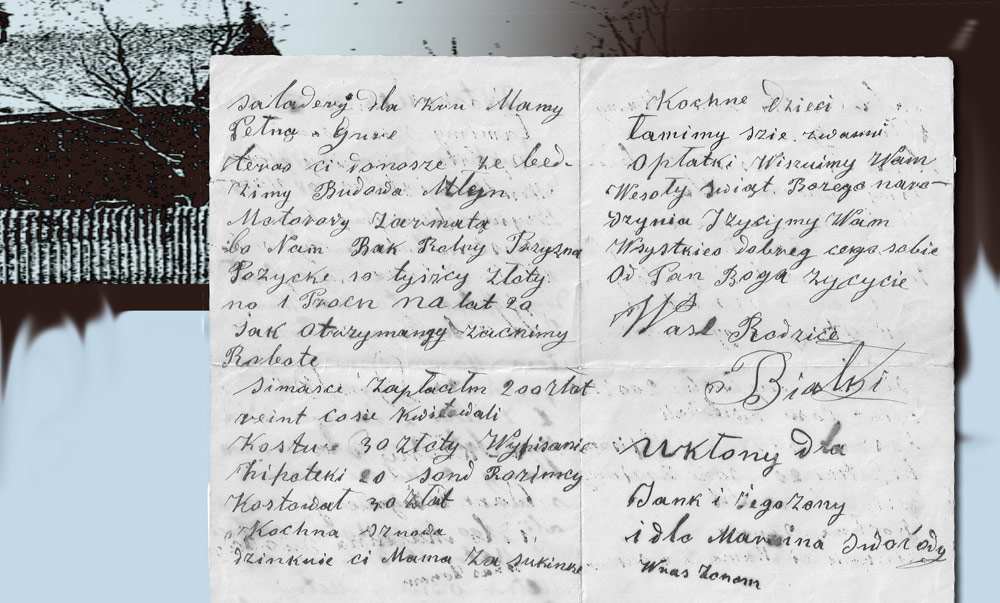 saladery dla Kru Mamy
Petną Gure
teras ci donosze ze bed-
zimy Budowa Mlyn
Motorovy Zarmatą
bo Nam Bak Rolny Przyzna
Pozycke 10 tyjszcy Zloty
no 1 Procn na lat 20
jak otrzymamy zacnimy
Robote
simasci Zapłacilm 200 złot
reint cosie Kwitowali
Kostu 30 zloty Wypisanie
hipoteki 20 sond Rozimcy
Kostowat 30 złat
Kochna Iznoda
dzinkuie ci Mama za sukinke
Kochne Dzieci
Łamimy szie zwami
Opłatki Wiszuimy Wam
Wesoły swiąt Bozego naro-
dzynia I zycyjmy Wam
Wsystkieo dobreg cego sobie
Od Pan Boga zycycie
Wasi Rodzice
Bialki
Ukłony dla
Jank i jego zony
i dla Marcina
Wras zonom